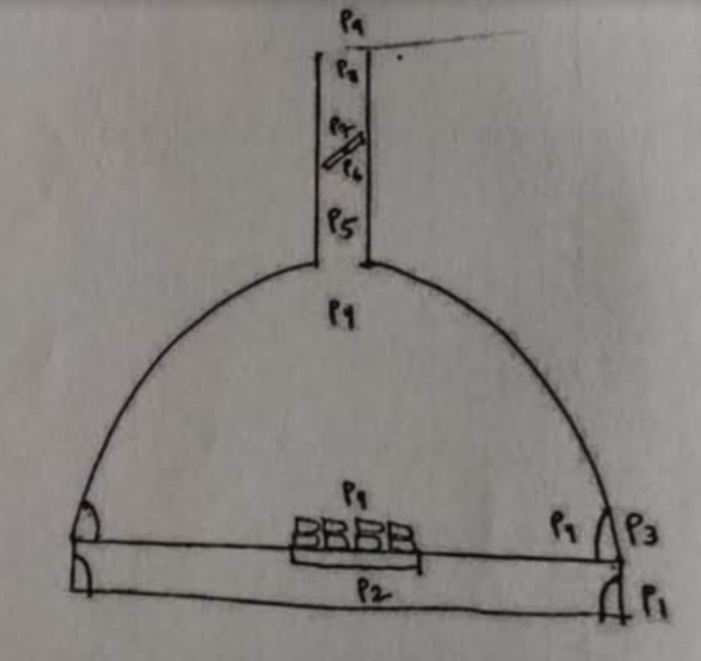 P9
P8
P7
P6
P5
P4
P4
P4 P3
P2
P1